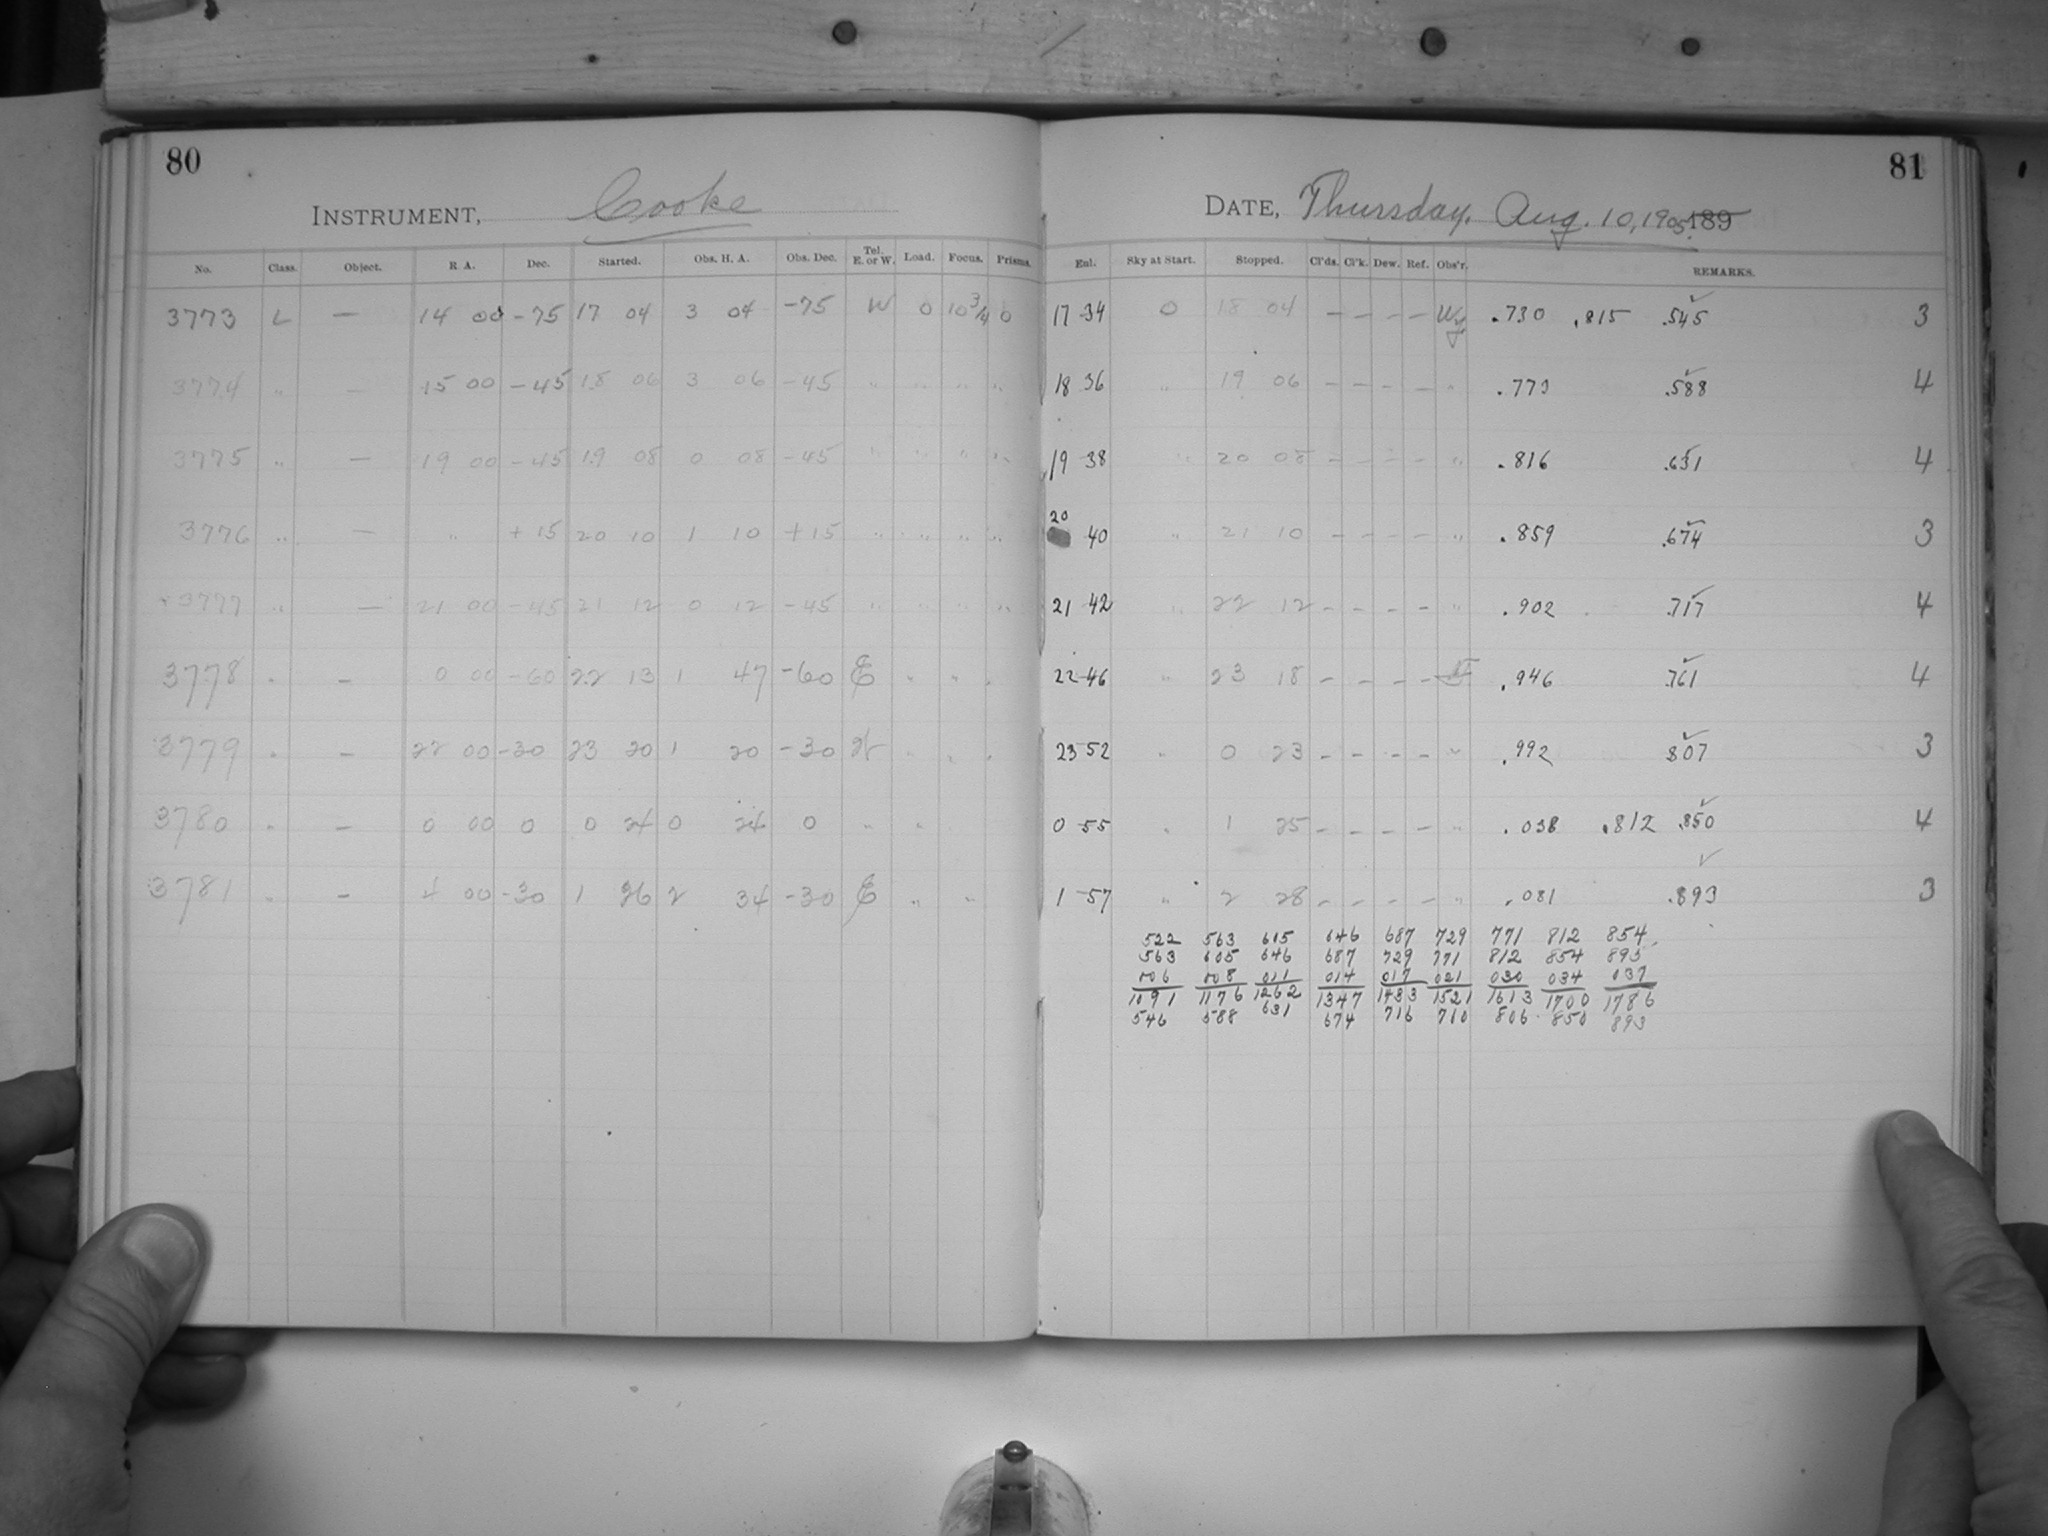 80
81
INSTRUMENT, Cooke
DATE, Thursday. Aug. 10, 1905. 189
No. Class. Object. R A. Dec. Started. Obs. H. A. Obs. Dec. Tel. E. or W. Load. Focus. Prisms. Enl. Sky at Start. Stopped. Cl'ds. Cl'k. Dew. Ref. Obs'r. REMARKS.
3773 L — 14 00 -75 17 04 3 04 -75 W 0 10 3/4 0 17 34 0 18 04 - - - - Wy. .730 .815 .545 ✓ 3
3774 " — 15 00 -45 18 06 3 06 -45 " " " " 18 36 " 19 06 - - - - " .773 .588 ✓ 4
3775 " — 19 00 -45 19 08 0 08 -45 " " " " 19 38 " 20 08 - - - - " .816 .631 ✓ 4
3776 " — " +15 20 10 1 10 +15 " " " " 20 40 " 21 10 - - - - " .859 .674 ✓ 3
3777 " — 21 00 -45 21 12 0 12 -45 " " " " 21 42 " 22 12 - - - - " .902 .717 ✓ 4
3778 " — 0 00 -60 22 13 1 47 -60 E " " " 22 46 " 23 18 - - - - .946 .761 ✓ 4
3779 " — 22 00 -30 23 20 1 20 -30 W " " " 23 52 " 0 23 - - - - " .992 807 ✓ 3
3780 " — 0 00 0 0 24 0 24 0 " " 0 55 " 1 25 - - - - " .038 .812 .850 ✓ 4
3781 " — 4 00 -30 1 26 2 34 -30 E " " 1 57 " 2 28 - - - - " .081 .893 ✓ 3
522 563 605 646 687 729 771 812 854
563 605 646 687 729 771 812 854 895
006 008 011 014 017 021 030 034 037
1091 1176 1262 1347 1433 1521 1613 1700 1786
546 588 631 674 716 760 806 850 893